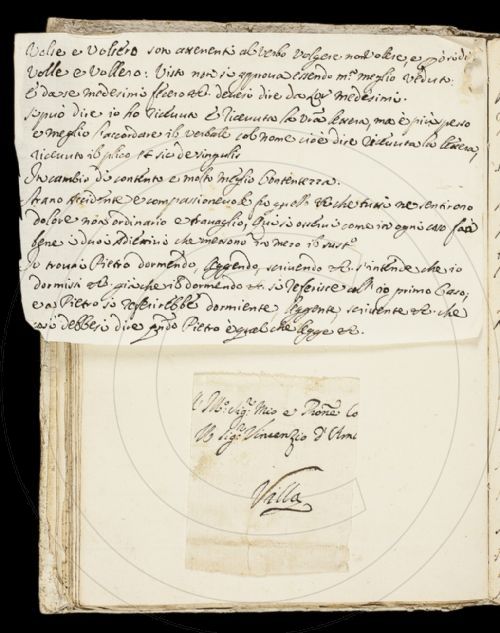 Volse e Volsero son attenenti al verbo Volgere non Volere, e però di
Volle e Vollero: Visto non si approva essendo m.to meglio Veduto.
E da se medesimi fecero etc. devesi dire da lor medesimi.
Si può dire io ho ricevuta e ricevuto la Vra lettera, ma è più spesso
e meglio l'accordare il verbale col nome cioè dire ricevuta la lettera,
ricevuto il plico et sic de singulis
In cambio di contento è molto meglio Contentezza.
strano Accidente e compassionevole fu quello che tutti ne sentirono
dolore non ordinario e travaglio, Qui si osservi come in ogni caso
bene i due Adiettivi che mettono in mezo il sust.o
Io trovai Pietro dormendo, leggendo, scrivendo etc. s'intende che io
dormissi etc. più che il dormendo etc. si referisce all' io primo Caso,
e a Pietro si referirebbe dormiente leggente scrivente etc. che
così debbesi dire Pietro è quel che legge etc.
Ill.mo Sig.r Mio e Pron.e Co
Il Sig.r Vincenzio d'Am
Villa